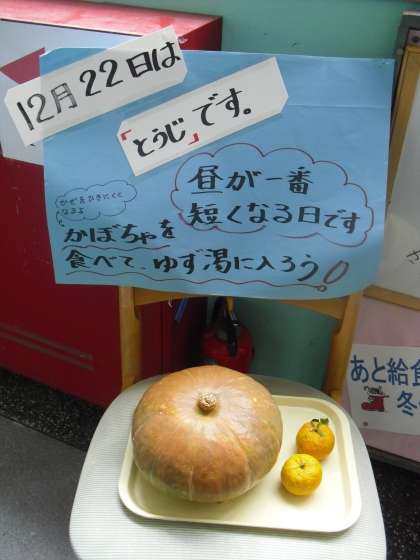 12月22日は
「とうじ」です。
昼が一番
短くなる日です
かぜをひきにくく
なるよ
かぼちゃを
食べて、ゆず湯に入ろう!
あと給食
冬